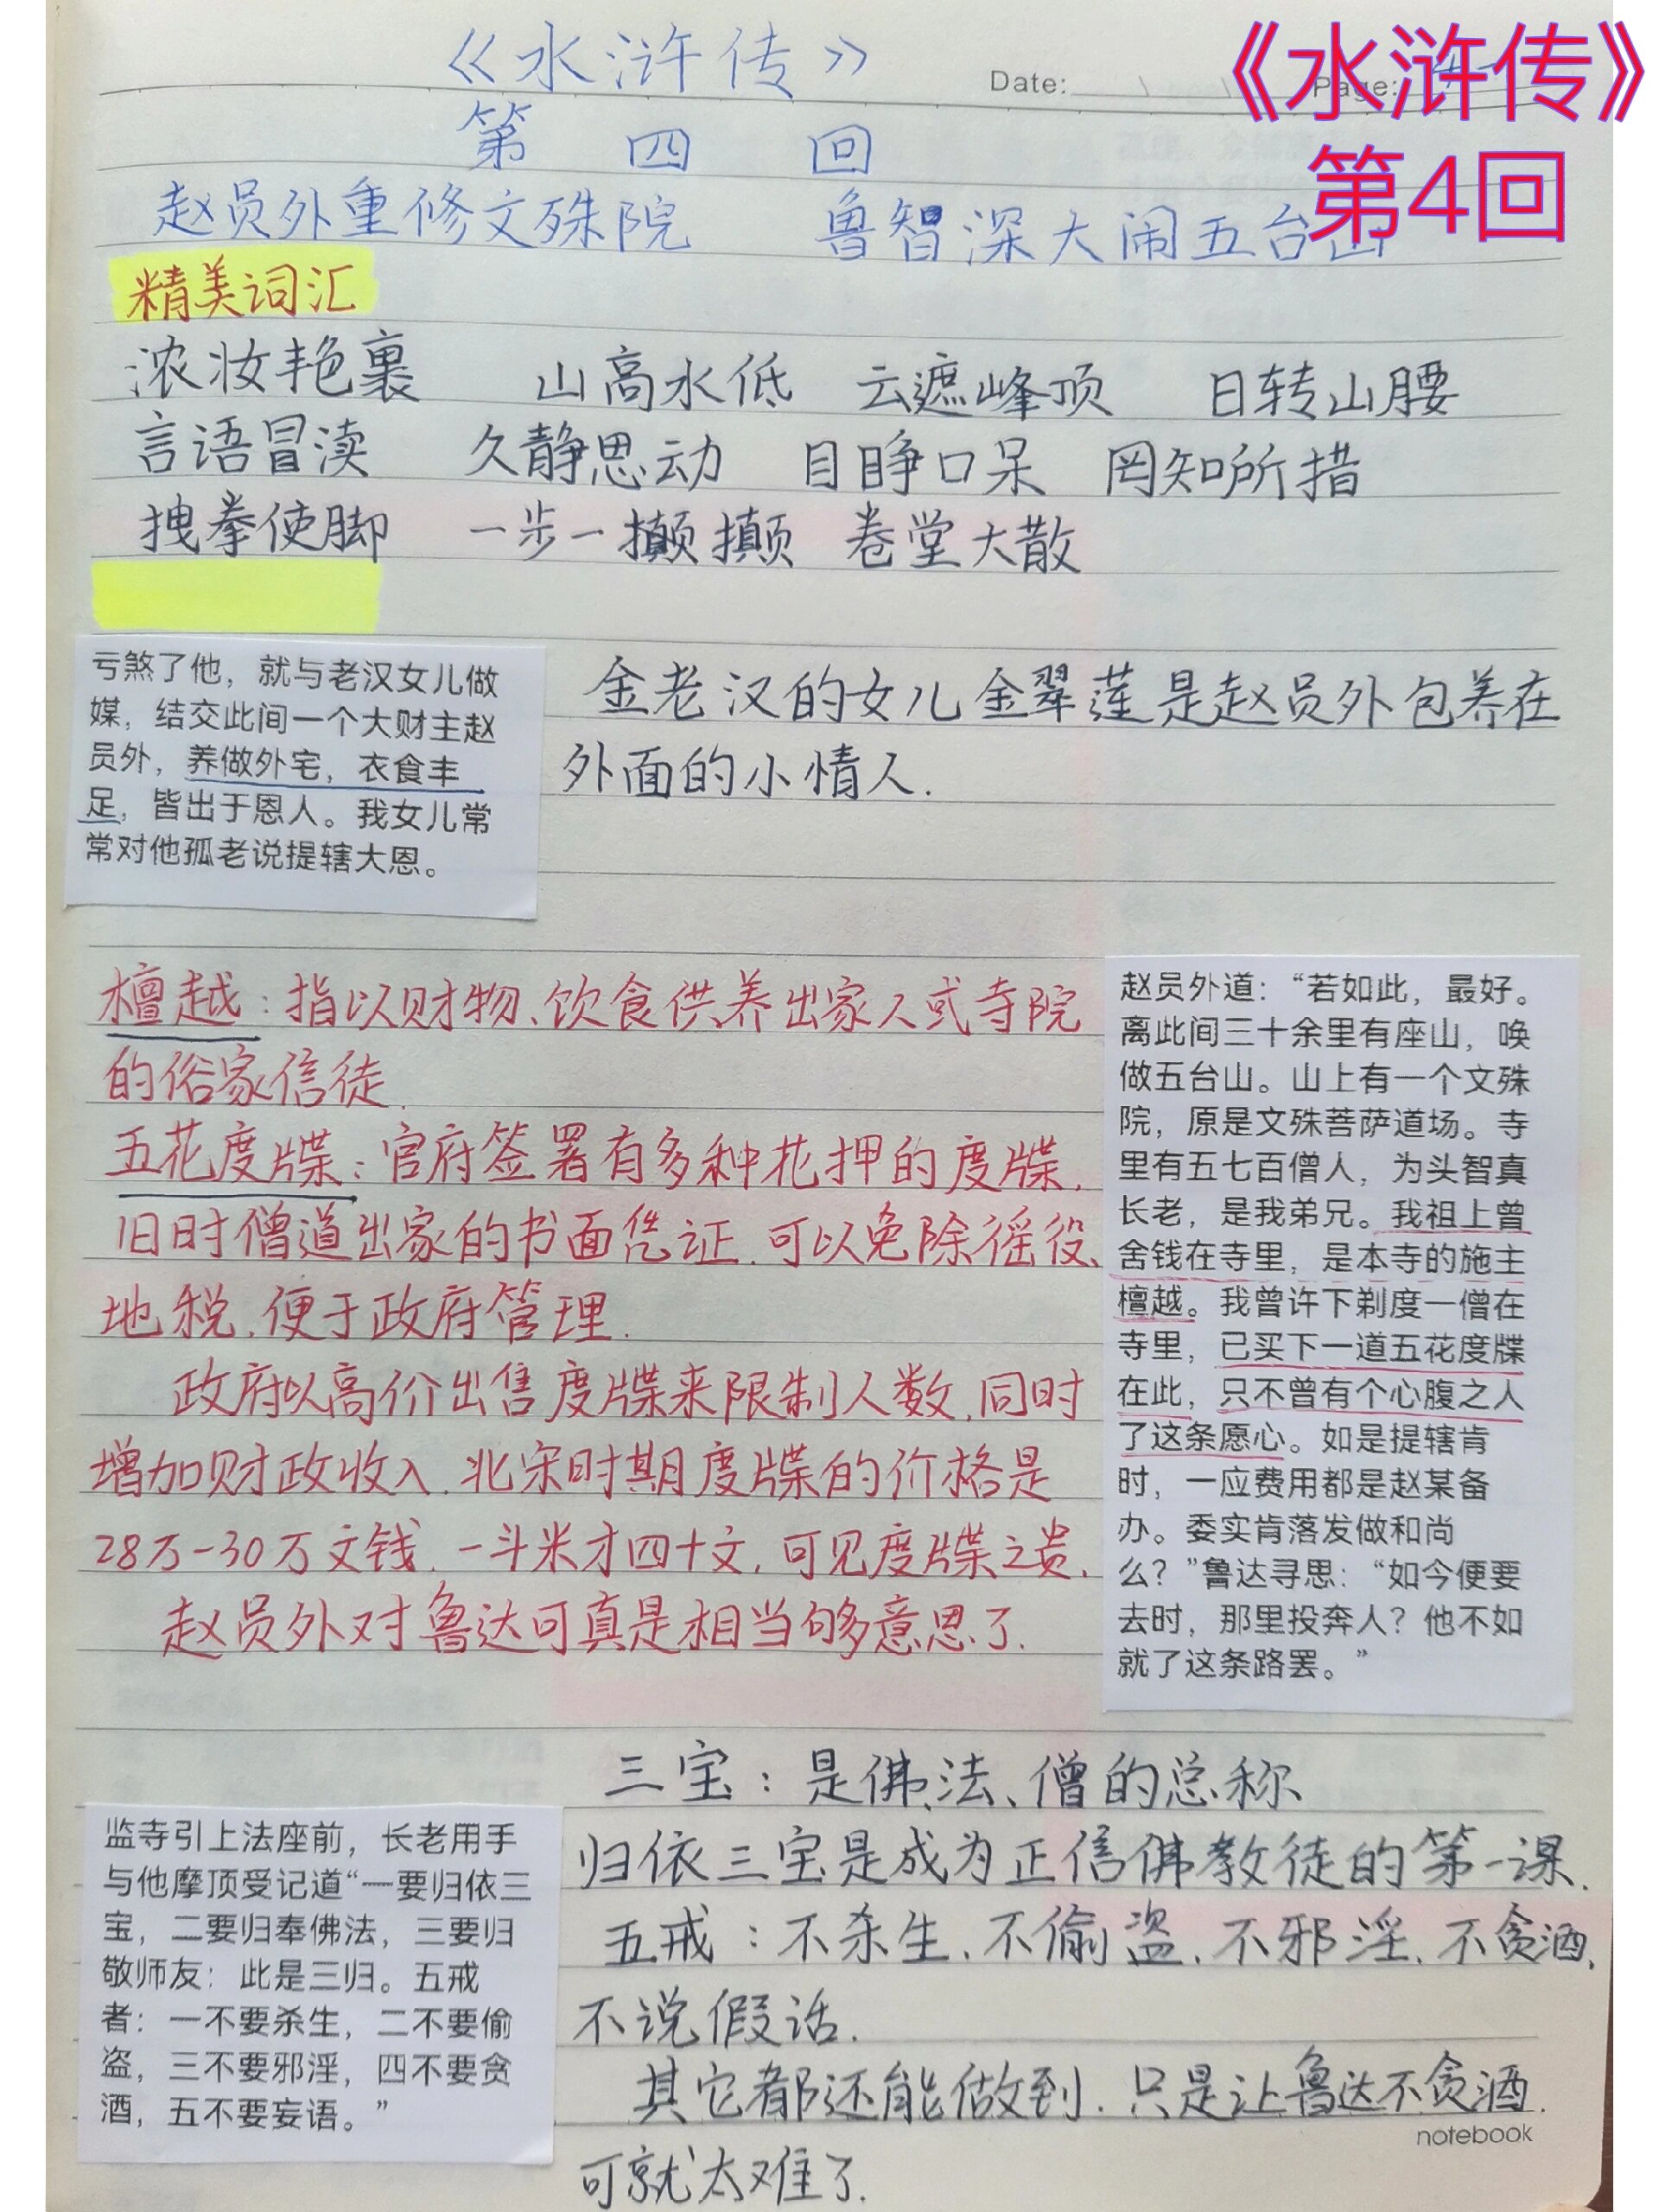 《水浒传》
Date:
Page:
《水浒传》
第4回
第四回
赵员外重修文殊院 鲁智深大闹五台山
精美词汇
浓妆艳裹 山高水低 云遮峰顶 日转山腰
言语冒渎 久静思动 目睁口呆 罔知所措
拽拳使脚 一步一攧攧 卷堂大散
亏煞了他，就与老汉女儿做
媒，结交此间一个大财主赵
员外，养做外宅，衣食丰
足，皆出于恩人。我女儿常
常对他孤老说提辖大恩。
金老汉的女儿金翠莲是赵员外包养在
外面的小情人.
檀越：指以财物、饮食供养出家人或寺院
的俗家信徒.
五花度牒：官府签署有多种花押的度牒.
旧时僧道出家的书面凭证.可以免除徭役、
地税.便于政府管理.
政府以高价出售度牒来限制人数.同时
增加财政收入.北宋时期度牒的价格是
28万-30万文钱.一斗米才四十文.可见度牒之贵.
赵员外对鲁达可真是相当够意思了.
赵员外道：“若如此，最好。
离此间三十余里有座山，唤
做五台山。山上有一个文殊
院，原是文殊菩萨道场。寺
里有五七百僧人，为头智真
长老，是我弟兄。我祖上曾
舍钱在寺里，是本寺的施主
檀越。我曾许下剃度一僧在
寺里，已买下一道五花度牒
在此，只不曾有个心腹之人
了这条愿心。如是提辖肯
时，一应费用都是赵某备
办。委实肯落发做和尚
么？”鲁达寻思：“如今便要
去时，那里投奔人？他不如
就了这条路罢。”
三宝：是佛、法、僧的总称
归依三宝是成为正信佛教徒的第一课.
五戒：不杀生.不偷盗.不邪淫.不贪酒.
不说假话.
其它都还能做到.只是让鲁达不贪酒.
可就太难了.
监寺引上法座前，长老用手
与他摩顶受记道“一要归依三
宝，二要归奉佛法，三要归
敬师友：此是三归。五戒
者：一不要杀生，二不要偷
盗，三不要邪淫，四不要贪
酒，五不要妄语。”
notebook